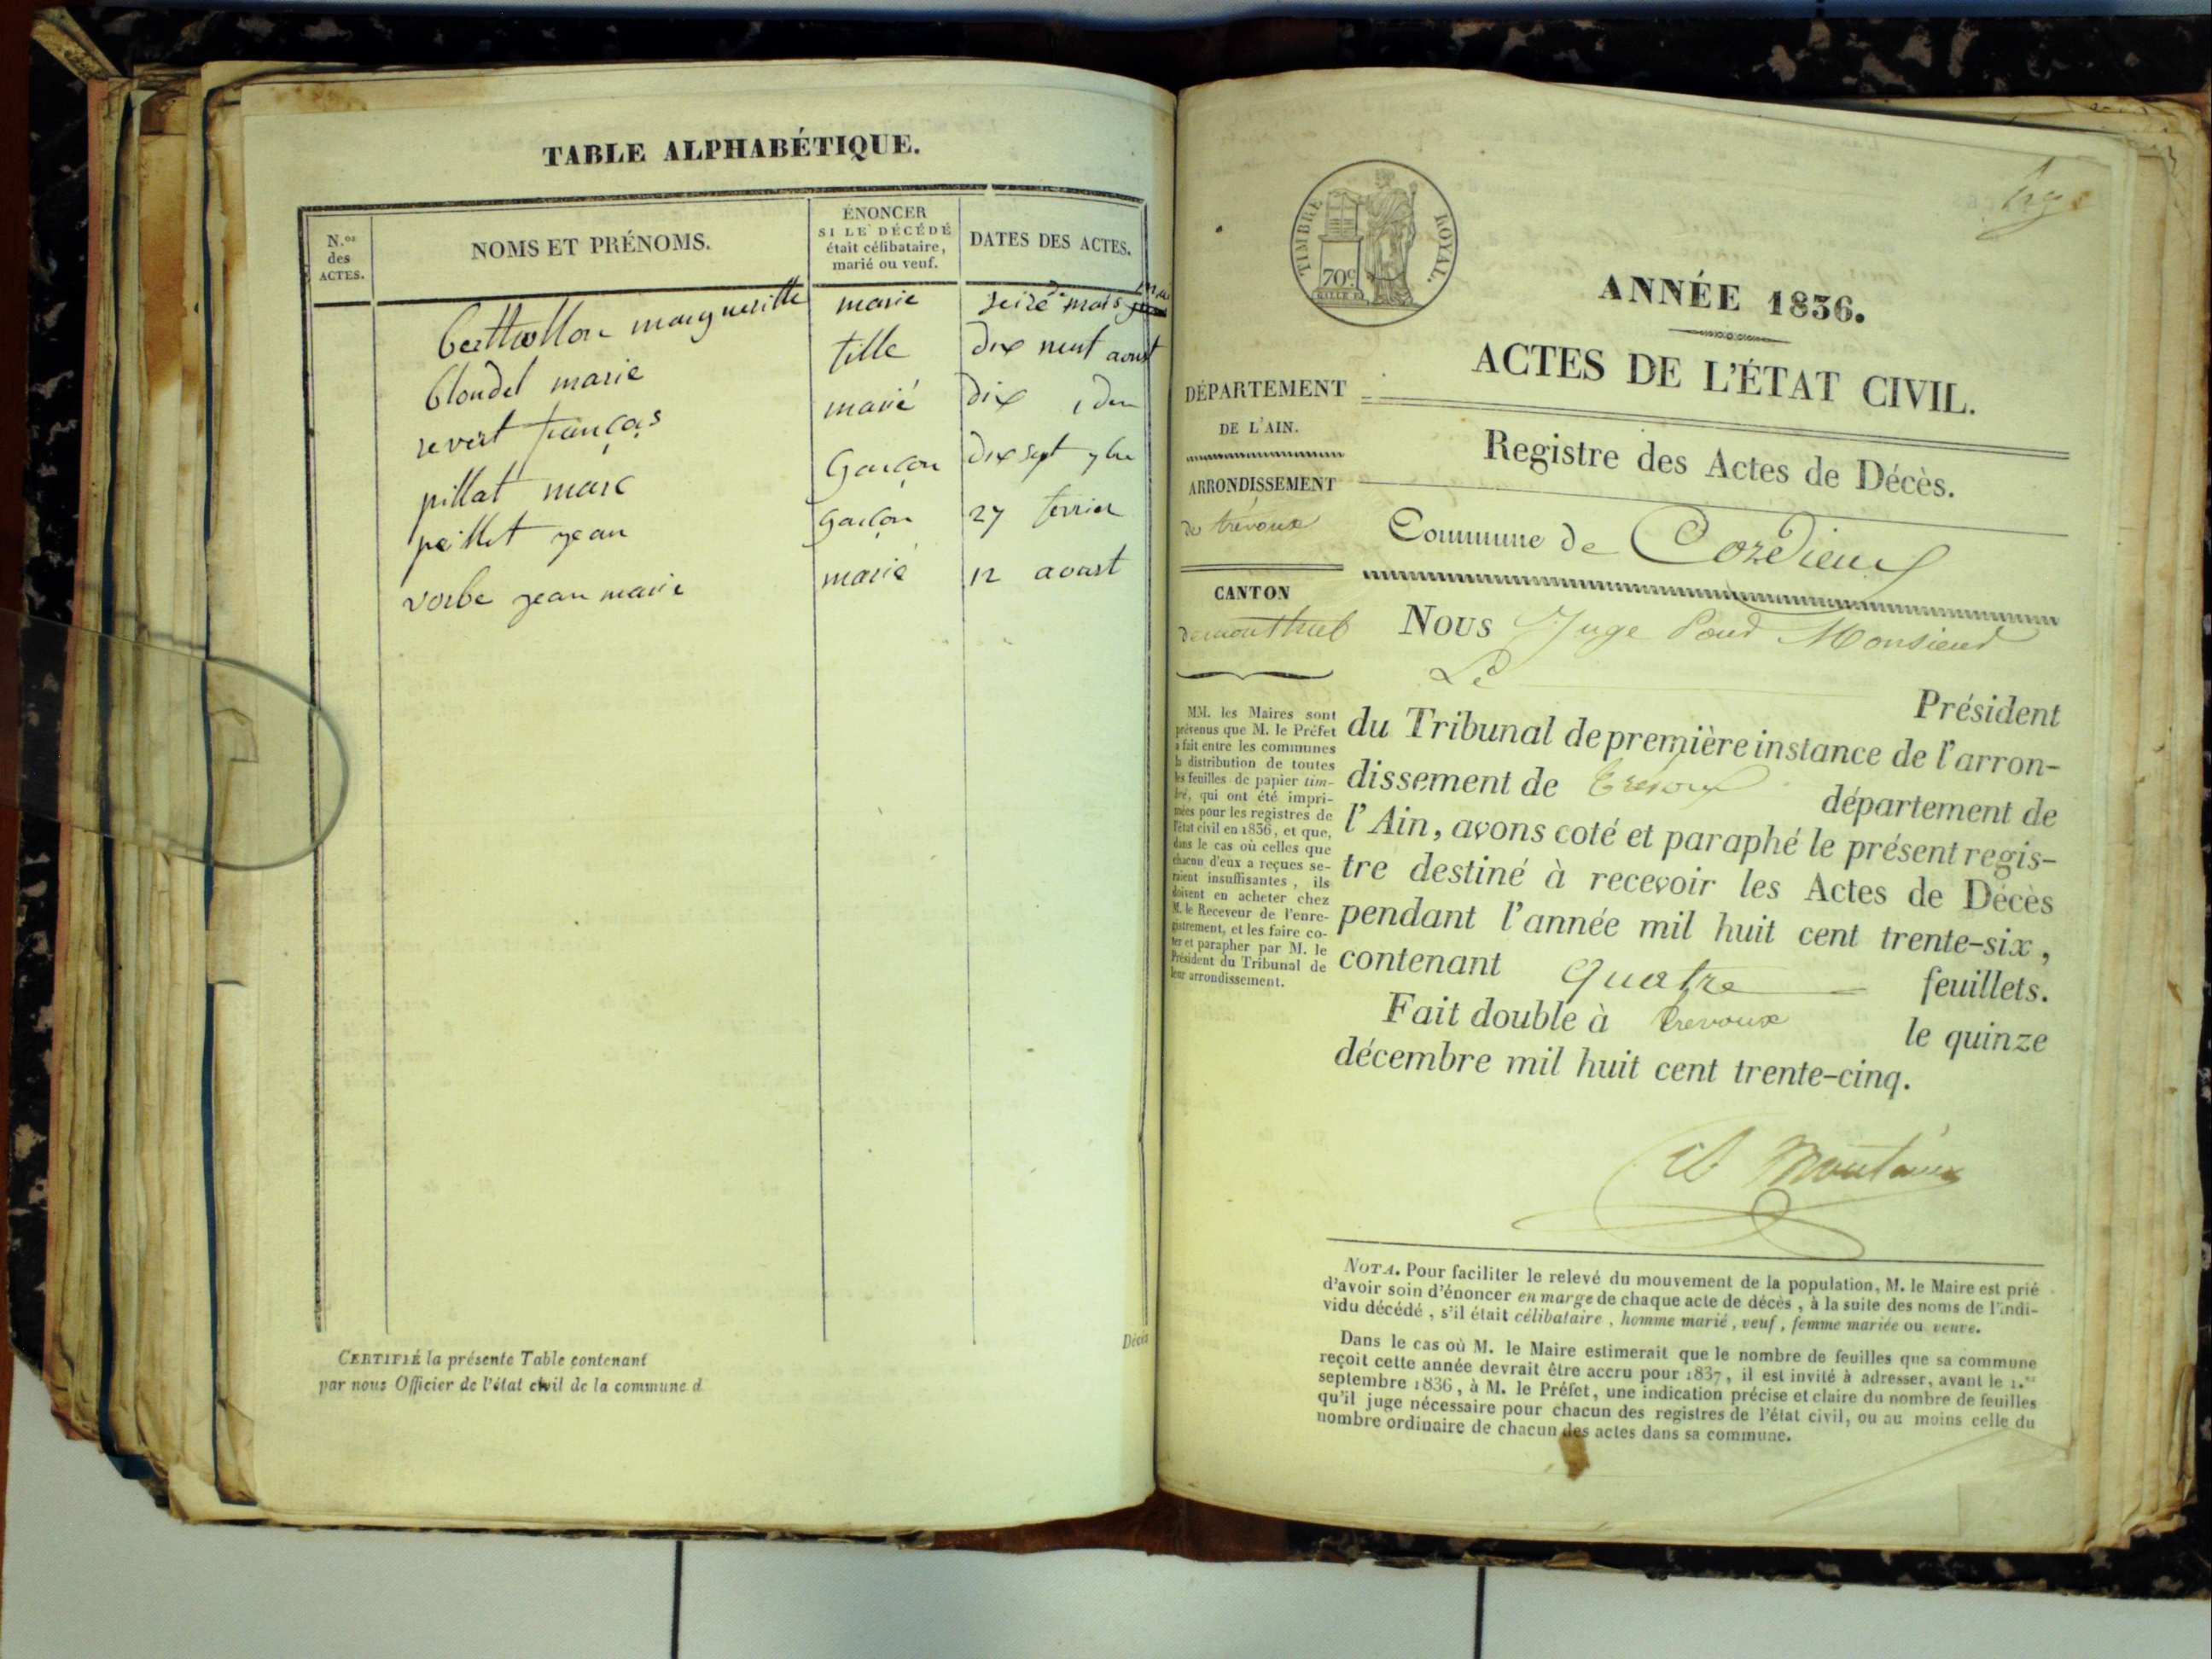 TABLE ALPHABÉTIQUE.
N.os des ACTES.
NOMS ET PRÉNOMS.
ÉNONCER
SI LE DÉCÉDÉ
était célibataire,
marié ou veuf.
DATES DES ACTES.
berthollon margueritte marie seize mars
blondel marie fille dix neuf aoust
revert françois marié dix idem
pillat marc Garçon dix sept 7bre
peillet jean Garçon 27 fevrier
vorbe jean marie marié 12 aoust
CERTIFIÉ la présente Table contenant
par nous Officier de l'état civil de la commune d
Décès
TIMBRE ROYAL.
70c
ANNÉE 1836.
ACTES DE L'ÉTAT CIVIL.
DÉPARTEMENT
DE L'AIN.
ARRONDISSEMENT
de trévoux
CANTON
de montluel
MM. les Maires sont
prévenus que M. le Préfet
a fait entre les communes
la distribution de toutes
les feuilles de papier tim-
bré, qui ont été impri-
mées pour les registres de
l'état civil en 1836, et que,
dans le cas où celles que
chacun d'eux a reçues se-
raient insuffisantes, ils
doivent en acheter chez
M. le Receveur de l'enre-
gistrement, et les faire co-
ter et parapher par M. le
Président du Tribunal de
leur arrondissement.
Registre des Actes de Décès.
Commune de Cordieux
Nous Juge Pour Monsieur
Le Président
du Tribunal de première instance de l'arron-
dissement de Trevoux département de
l'Ain, avons coté et paraphé le présent regis-
tre destiné à recevoir les Actes de Décès
pendant l'année mil huit cent trente-six,
contenant quatre feuillets.
Fait double à Trevoux le quinze
décembre mil huit cent trente-cinq.
NOTA. Pour faciliter le relevé du mouvement de la population, M. le Maire est prié
d'avoir soin d'énoncer en marge de chaque acte de décès, à la suite des noms de l'indi-
vidu décédé, s'il était célibataire, homme marié, veuf, femme mariée ou veuve.
Dans le cas où M. le Maire estimerait que le nombre de feuilles que sa commune
reçoit cette année devrait être accru pour 1837, il est invité à adresser, avant le 1.er
septembre 1836, à M. le Préfet, une indication précise et claire du nombre de feuilles
qu'il juge nécessaire pour chacun des registres de l'état civil, ou au moins celle du
nombre ordinaire de chacun des actes dans sa commune.